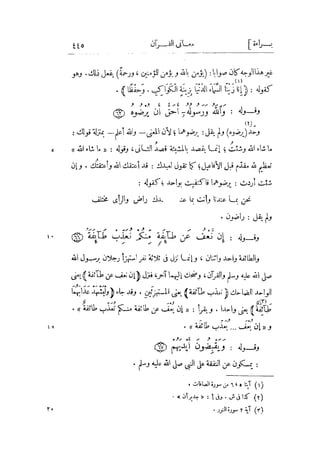 بـــراءة ] معـانى القـــرآن ٤٤٥
غير هذا الوجه كان صوابا : (يؤمن بالله ويؤمن للمؤمنين ، ورحمة) يفعل ذلك . وهو
كقوله : ﴿إنا زينا السماء الدنيا بزينة الكواكب . وحفظا﴾ (١) .
وقـــوله : والله ورسوله أحق أن يرضوه ٦٢
وحد (يرضوه) (٢) ولم يقل : يرضوهما ؛ لأن المعنى — والله أعلم — بمنزلة قولك :
ما شاء الله وشئت ؛ إنما يقصد بالمشيئة قصد الثانى ، وقوله : « ما شاء الله » ٥
تعظيم لله مقدم قبل الأفاعيل ؛ كما تقول لعبدك : قد أعتقك الله وأعتقتك . وإن
شئت أردت : يرضوهما فاكتفيت بواحد ؛ كقوله :
نحن بما عندنا وأنت بما عند دك راض والرأى مختلف
ولم يقل : راضون .
وقـــوله : إن نعف عن طائفة منكم نعذب طائفة ٦٦ ١٠
والطائفة واحد واثنان ، وإنما نزل فى ثلاثة نفر استهزأ رجلان برسول الله
صلى الله عليه وسلم والقرآن، وضحك إليهما آخر، فنزل (إن نعف عن طائفة) يعنى
الواحد الضاحك (نعذب طائفة) يعنى المستهزئين . وقد جاء ﴿وليشهد عذابهما
طائفة﴾ (٣) يعنى واحدا . ويقرأ : « إن يعف عن طائفة منكم تعذب طائفة » .
و « إن يعف ... يعذب طائفة » . ١٥
وقـــوله : ويقبضون أيديهم ٦٧
: يمسكون عن النفقة على النبى صلى الله عليه وسلم .
(١) آيتا ٦ ، ٧ من سورة الصافات .
(٢) كذا فى ش . وفى أ : « جديرأن » .
(٣) آية ٢ سورة النور . ٢٠